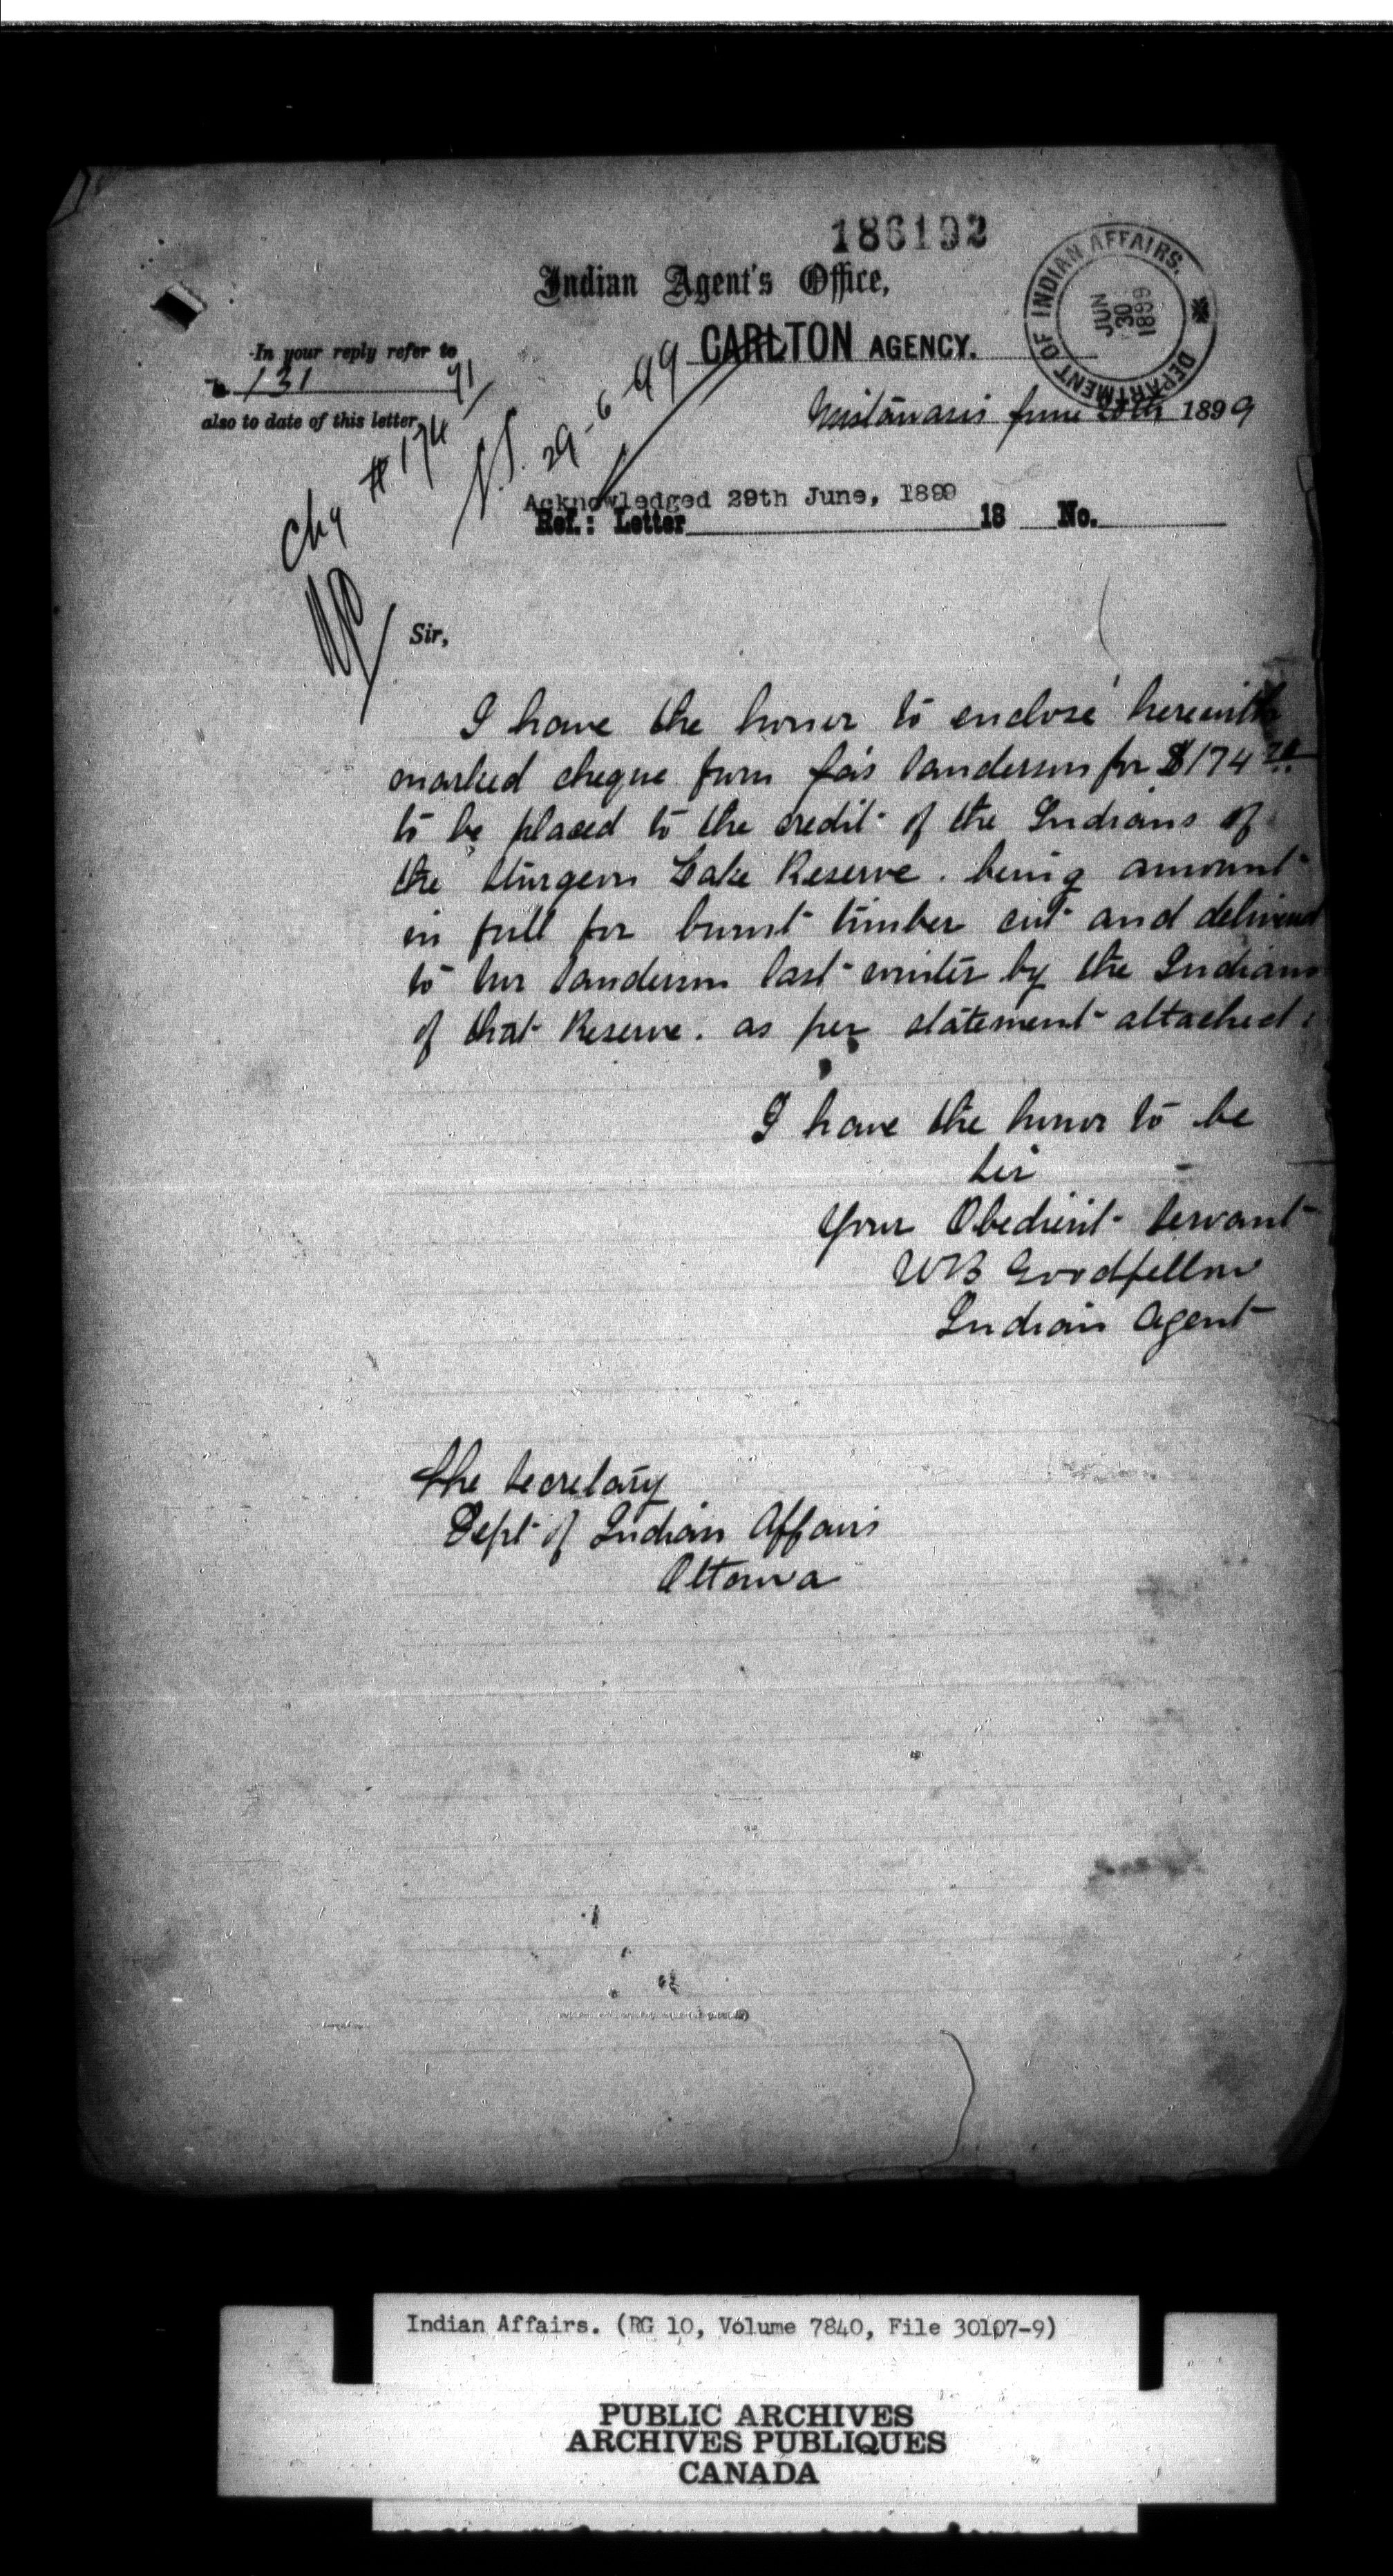 186192
Indian Agent's Office,
CARLTON AGENCY.
DEPARTMENT OF INDIAN AFFAIRS.
JUN
30
1899
In your reply refer to
131
also to date of this letter
Mistawasis June 20th 1899
29-6-99
#174
Chq
Acknowledged 29th June, 1899
Ref.: Letter 18 No.
Sir,
I have the honor to enclose herewith
marked cheque from Jas Sanderson for $174
to be placed to the credit of the Indians of
the Sturgeon Lake Reserve. being amount
in full for burnt timber cut and delivered
to Mr Sanderson last winter by the Indians
of that Reserve. as per statement attached.
I have the honor to be
Sir
Your Obedient Servant
WB Goodfellow
Indian Agent
The Secretary
Dept of Indian Affairs
Ottawa
Indian Affairs. (RG 10, Volume 7840, File 30107-9)
PUBLIC ARCHIVES
ARCHIVES PUBLIQUES
CANADA